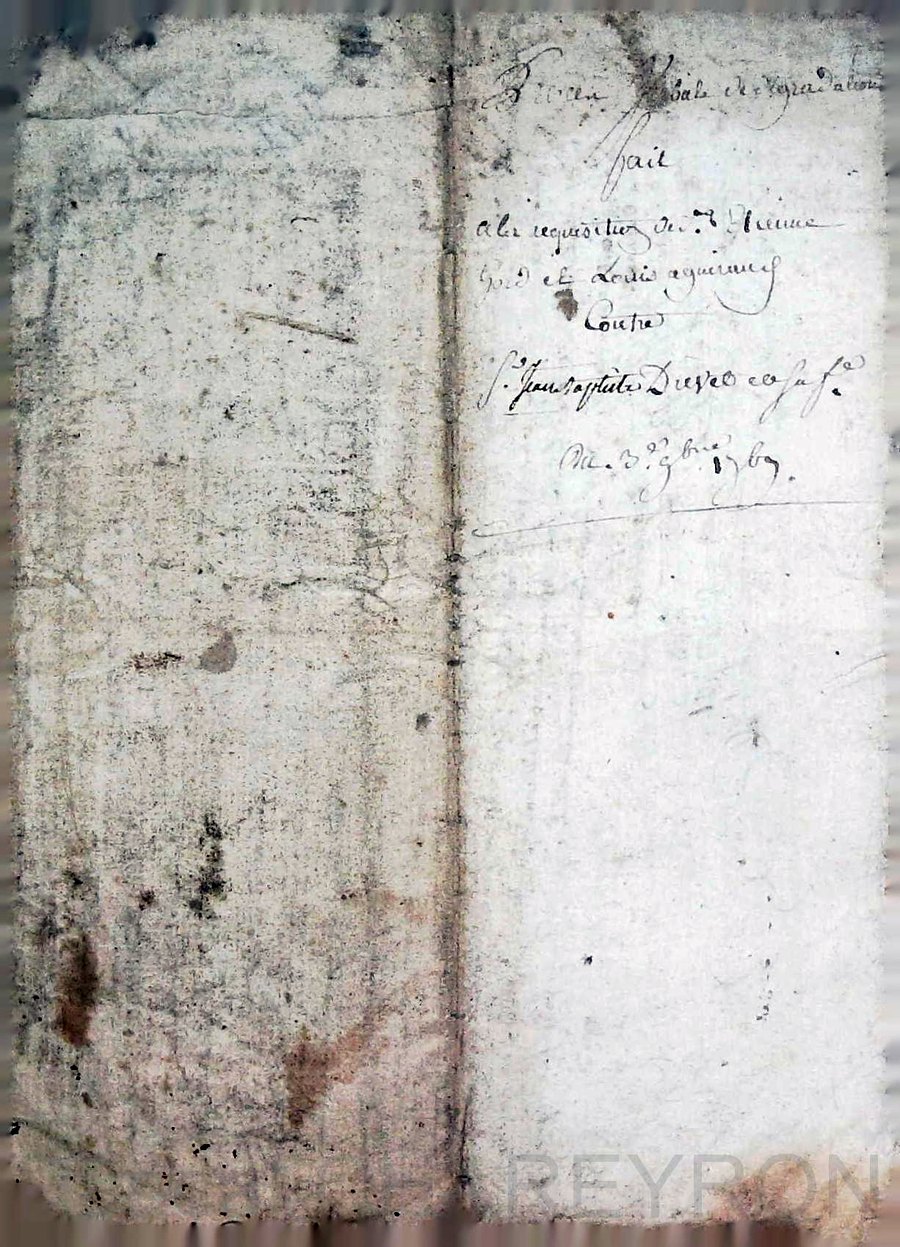 Procès Verbale de degradation
fait
a la requisition des Srs Etienne
et Louis aguiraud
Contre
Sr. Jean Baptiste Drevet et sa fe
Du. 3e 9bre 1769.
REYRON